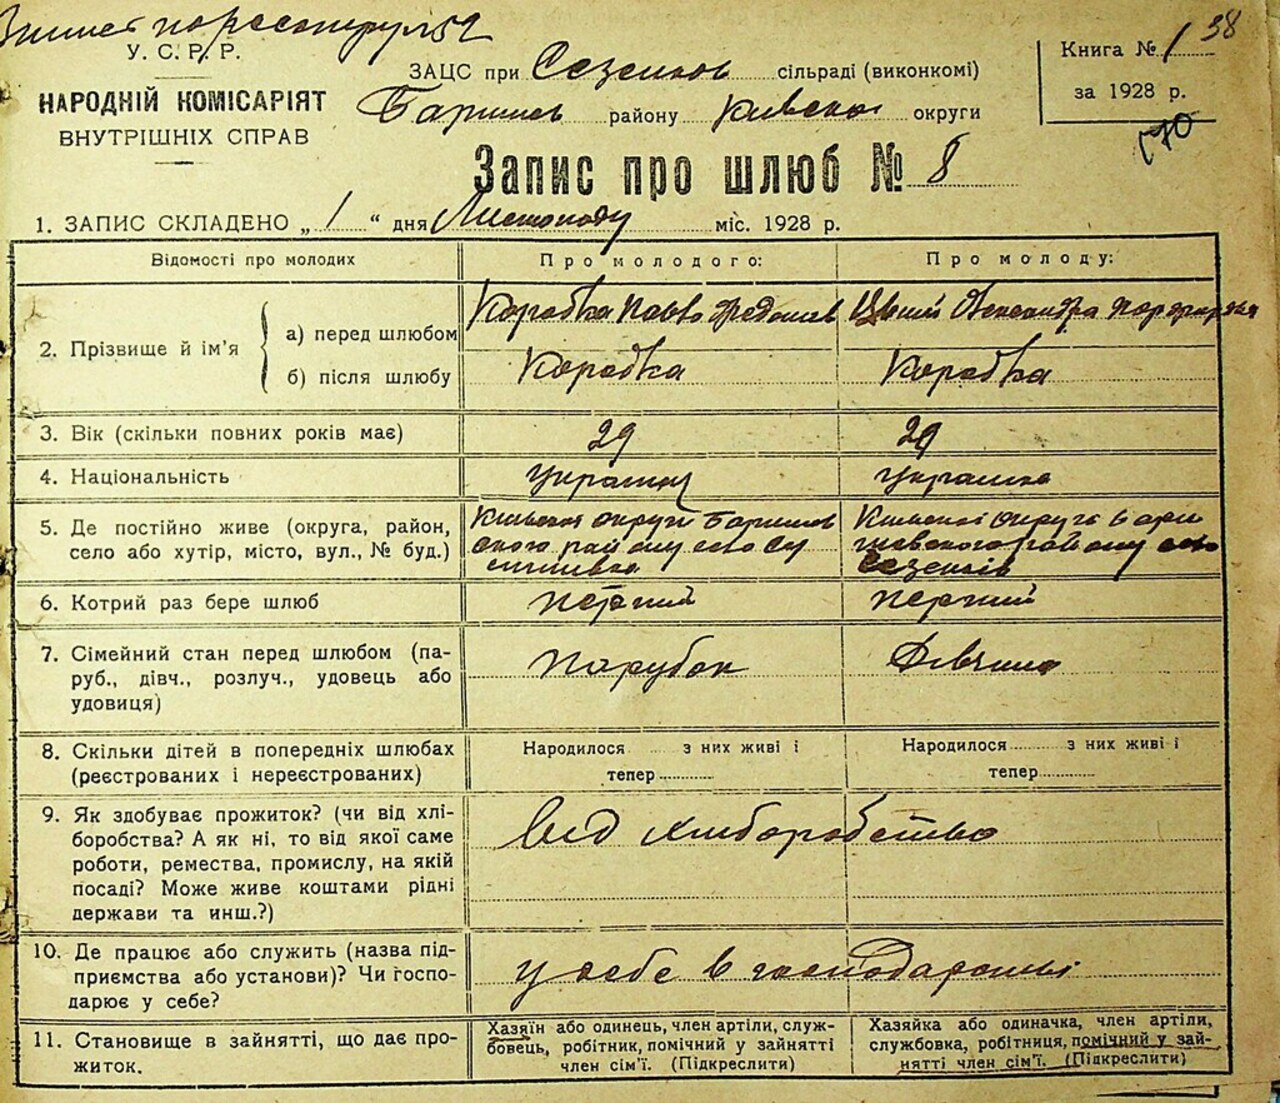 У. С. Р. Р.
НАРОДНІЙ КОМІСАРІЯТ
ВНУТРІШНІХ СПРАВ
ЗАЦС при Сезенков сільраді (виконкомі)
Баришев району Київської округи
Книга № 1 38
за 1928 р.
170
Запис про шлюб № 8
1. ЗАПИС СКЛАДЕНО „ 1 “ дня Листопаду міс. 1928 р.
Відомості про молодих
Про молодого:
Про молоду:
2. Прізвище й ім'я
а) перед шлюбом
Коробка Павло
Олександра
б) після шлюбу
Коробка
Коробка
3. Вік (скільки повних років має)
29
29
4. Національність
Українец
Українка
5. Де постійно живе (округа, район,
село або хутір, місто, вул., № буд.)
Київської округи Баришев
ского району село
Київської округи Бари
шевского району село
Сезенків
6. Котрий раз бере шлюб
перший
перший
7. Сімейний стан перед шлюбом (па-
руб., дівч., розлуч., удовець або
удовиця)
парубок
Дівчина
8. Скільки дітей в попередніх шлюбах
(реєстрованих і нереєстрованих)
Народилося з них живі і
тепер
Народилося з них живі і
тепер
9. Як здобуває прожиток? (чи від хлі-
боробства? А як ні, то від якої саме
роботи, ремества, промислу, на якій
посаді? Може живе коштами рідні
держави та инш.?)
Від хліборобства
10. Де працює або служить (назва під-
приємства або установи)? Чи госпо-
дарює у себе?
у себе в господарстві
11. Становище в зайнятті, що дає про-
житок.
Хазяїн або одинець, член артіли, служ-
бовець, робітник, помічний у зайнятті
член сім'ї. (Підкреслити)
Хазяйка або одиначка, член артіли,
службовка, робітниця, помічний у зай-
нятті член сім'ї. (Підкреслити)